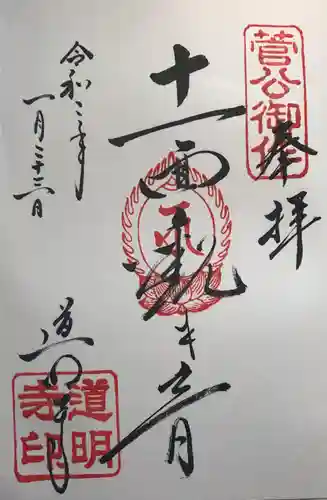 菅公御作
奉拝
十一面観世音
道明寺
道明
寺印
令和二年
一月二十三日